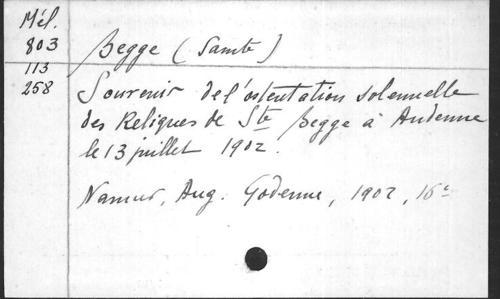 Mél.
803
113
258
Begge (Sainte)
Souvenir de l'ostentation solennelle
des Reliques de Ste Begge à Andenne
le 13 juillet 1902.
Namur, Aug. Godenne, 1902, 16°